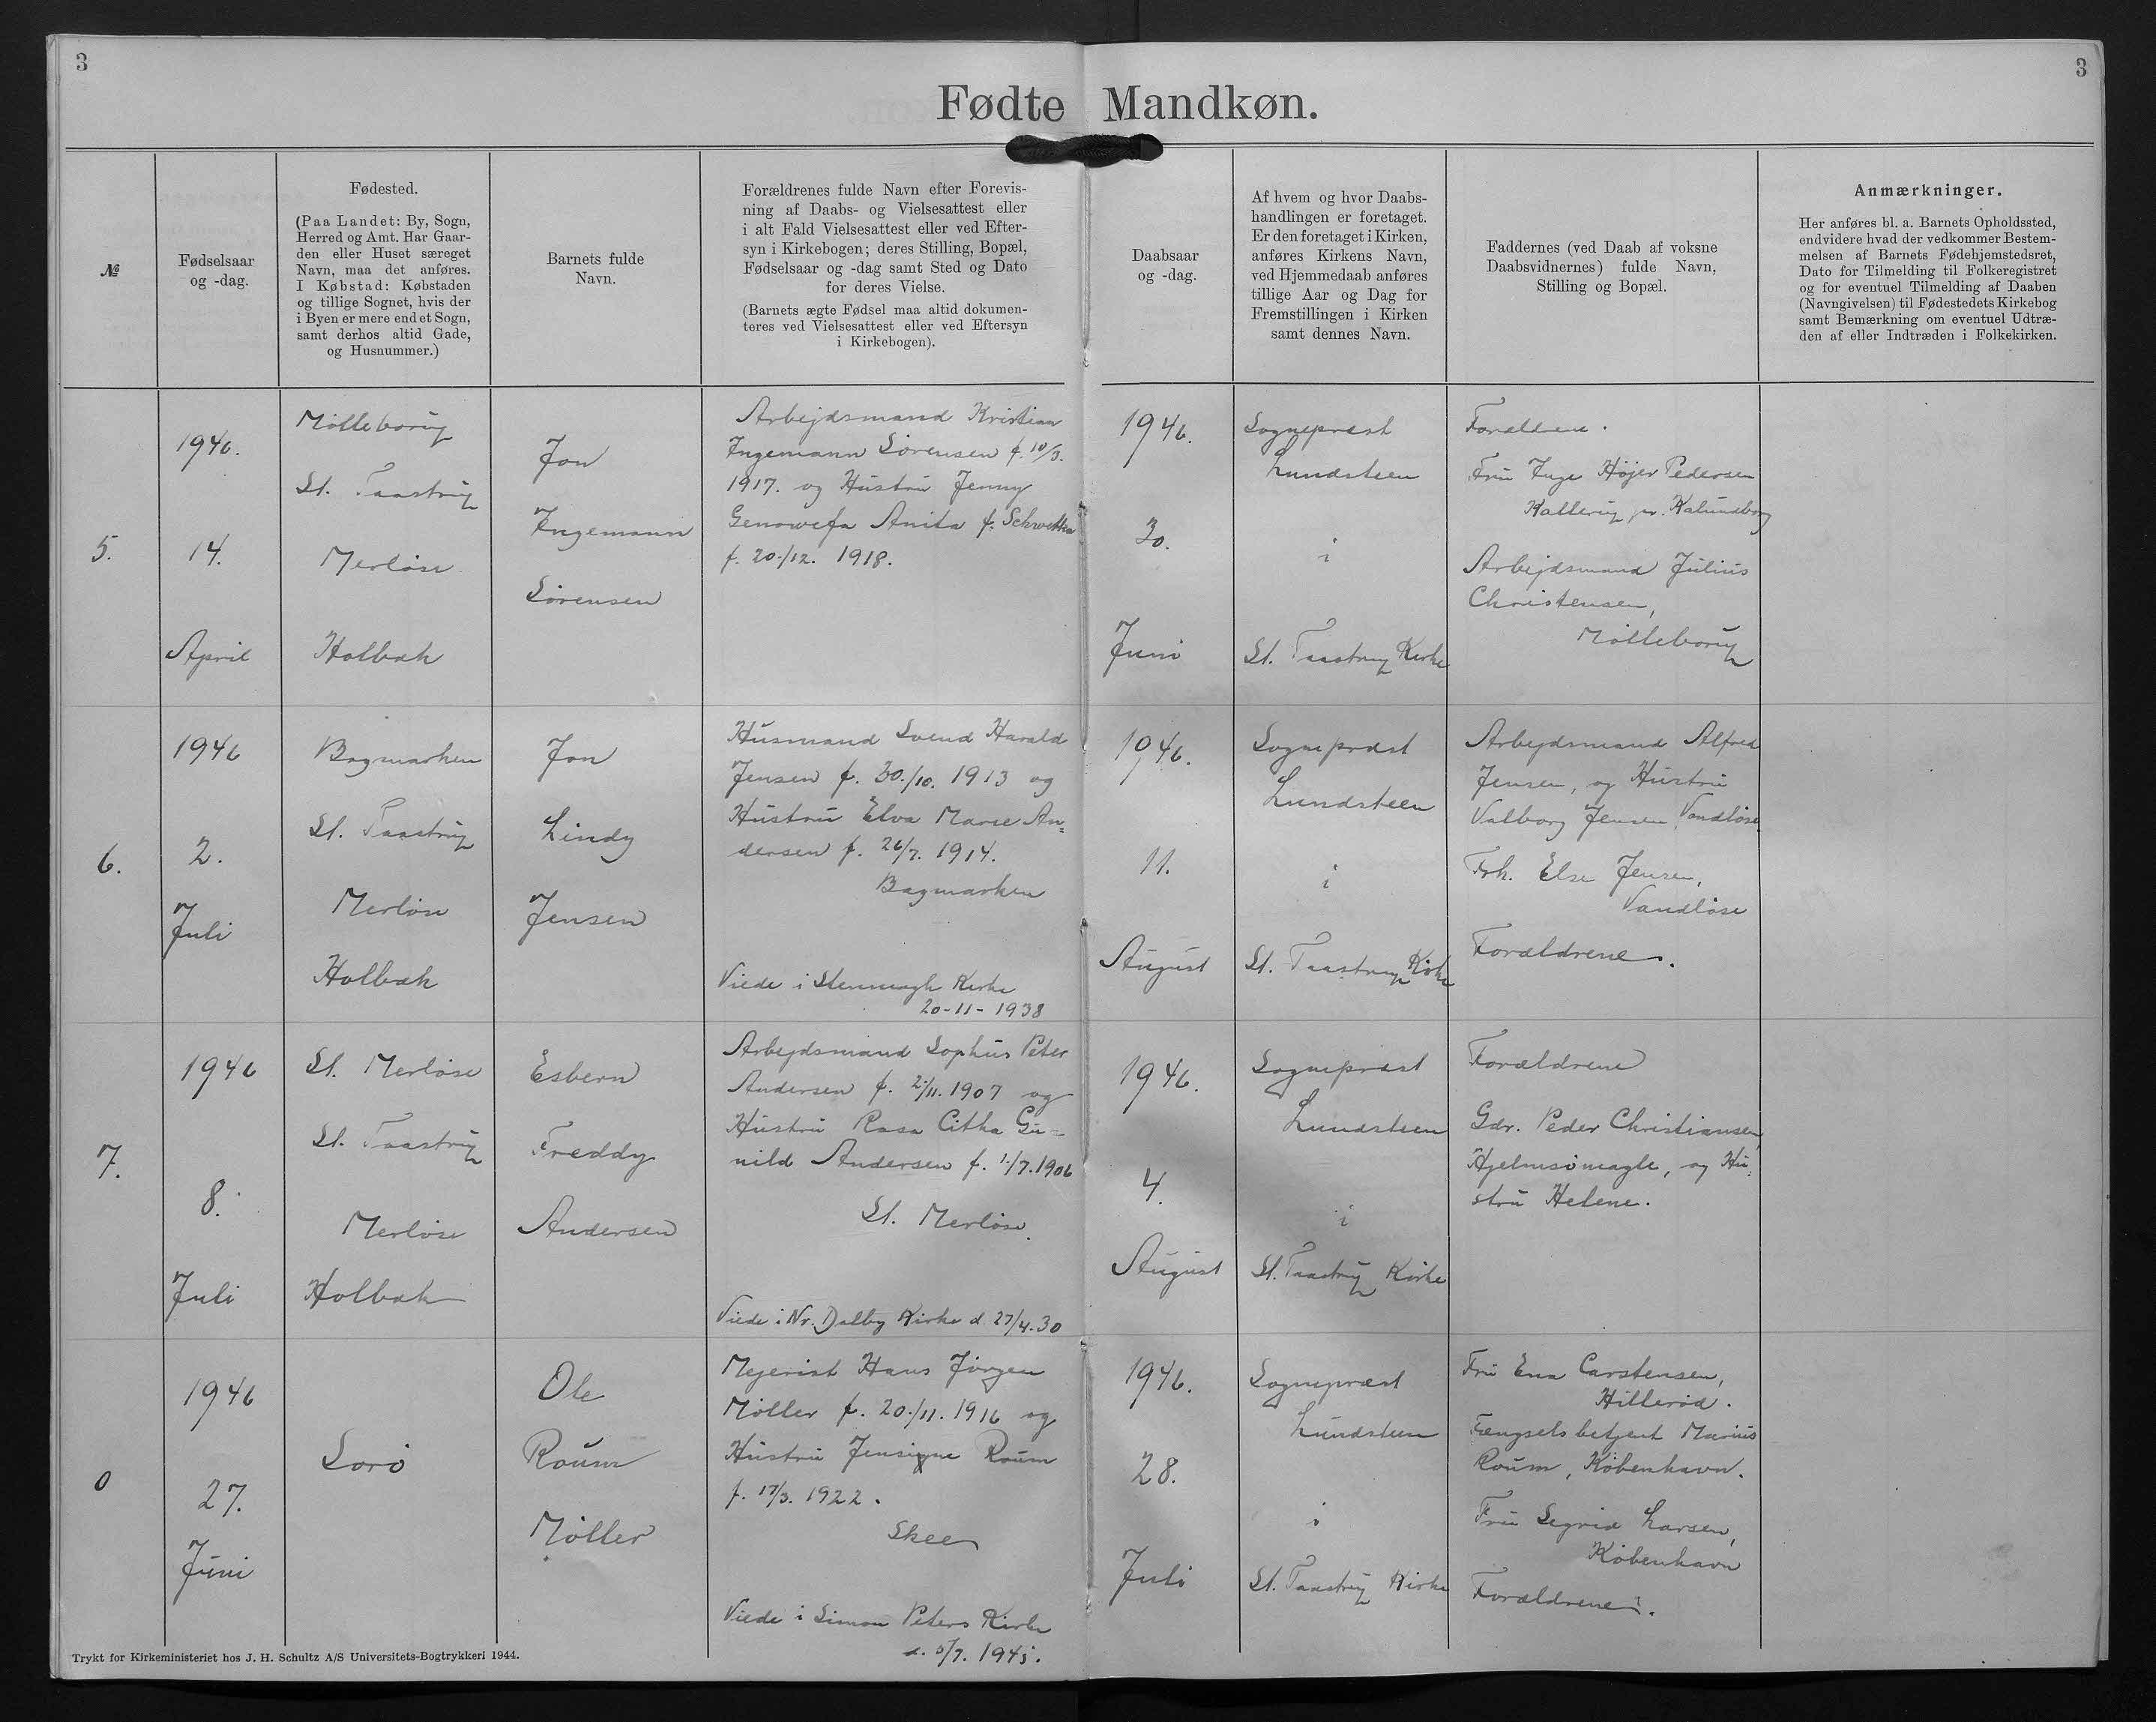 3
3
Fødte Mandkøn.
№
Fødselsaar
og -dag.
Fødested.
(Paa Landet: By, Sogn,
Herred og Amt. Har Gaar-
den eller Huset særeget
Navn, maa det anføres.
I Købstad: Købstaden
og tillige Sognet, hvis der
i Byen er mere end et Sogn,
samt derhos altid Gade,
og Husnummer.)
Barnets fulde
Navn.
Forældrenes fulde Navn efter Forevis-
ning af Daabs- og Vielsesattest eller
i alt Fald Vielsesattest eller ved Efter-
syn i Kirkebogen; deres Stilling, Bopæl,
Fødselsaar og -dag samt Sted og Dato
for deres Vielse.
(Barnets ægte Fødsel maa altid dokumen-
teres ved Vielsesattest eller ved Eftersyn
i Kirkebogen).
Daabsaar
og -dag.
Af hvem og hvor Daabs-
handlingen er foretaget.
Er den foretaget i Kirken,
anføres Kirkens Navn,
ved Hjemmedaab anføres
tillige Aar og Dag for
Fremstillingen i Kirken
samt dennes Navn.
Faddernes (ved Daab af voksne
Daabsvidnernes) fulde Navn,
Stilling og Bopæl.
Anmærkninger.
Her anføres bl. a. Barnets Opholdssted,
endvidere hvad der vedkommer Bestem-
melsen af Barnets Fødehjemstedsret,
Dato for Tilmelding til Folkeregistret
og for eventuel Tilmelding af Daaben
(Navngivelsen) til Fødestedets Kirkebog
samt Bemærkning om eventuel Udtræ-
den af eller Indtræden i Folkekirken.
5.
1946.
14.
April
Mölleborup
St. Taastrup
Merløse
Holbæk
Jon
Ingemann
Sörensen
Arbejdsmand Kristian
Ingemann Sørensen f. 10/3.
1917. og Hustru Jenny
Genowefa Anita f. Schwetka
f. 20./12. 1918.
1946.
30.
Juni
Sognepræst
Lundsteen
i
St. Taastrup Kirke
Forældrene.
Fru Inge Højer Pedersen
Kallerup pr. Kalundborg
Arbejdsmand Julius
Christensen,
Mölleborup
6.
1946
2.
Juli
Bagmarken
St. Taastrup
Merløse
Holbæk
Jon
Lindy
Jensen
Husmand Svend Harald
Jensen f. 30./10. 1913 og
Hustru Elva Marie An-
dersen f. 26/7. 1914.
Bagmarken
Viede i Stenmagle Kirke
20-11-1938
1946.
11.
August
Sognepræst
Lundsteen
i
St. Taastrup Kirke
Arbejdsmand Alfred
Jensen, og Hustru
Valborg Jensen, Vandløse.
Frk. Else Jensen,
Vandløse
Forældrene.
7.
1946
8.
Juli
St. Merløse
St. Taastrup
Merløse
Holbæk
Esbern
Freddy
Andersen
Arbejdsmand Sophus Peter
Andersen f. 2./11. 1907 og
Hustru Rasa Citha Gu-
nild Andersen f. 1./7. 1906
St. Merløse.
Viede i Nr. Dalby Kirke d. 27/4. 30
1946.
4.
August
Sognepræst
Lundsteen
i
St. Taastrup Kirke
Forældrene
Gdr. Peder Christiansen,
Hjelmsømagle, og Hu-
stru Helene.
0
1946
27.
Juni
Sorö
Ole
Roum
Møller
Mejerist Hans Jörgen
Møller f. 20./11. 1916 og
Hustru Jensigne Roum
f. 17/3. 1922.
Skee
Viede i Simon Peters Kirke
1946.
28.
Juli
Sognepræst
Lundsteen
i
St. Taastrup Kirke
Fru Ena Carstensen,
Hillerød.
Fængselsbetjent Marius
Roum, København.
Fru Sigrid Larsen,
København
Forældrene.
Trykt for Kirkeministeriet hos J. H. Schultz A/S Universitets-Bogtrykkeri 1944.